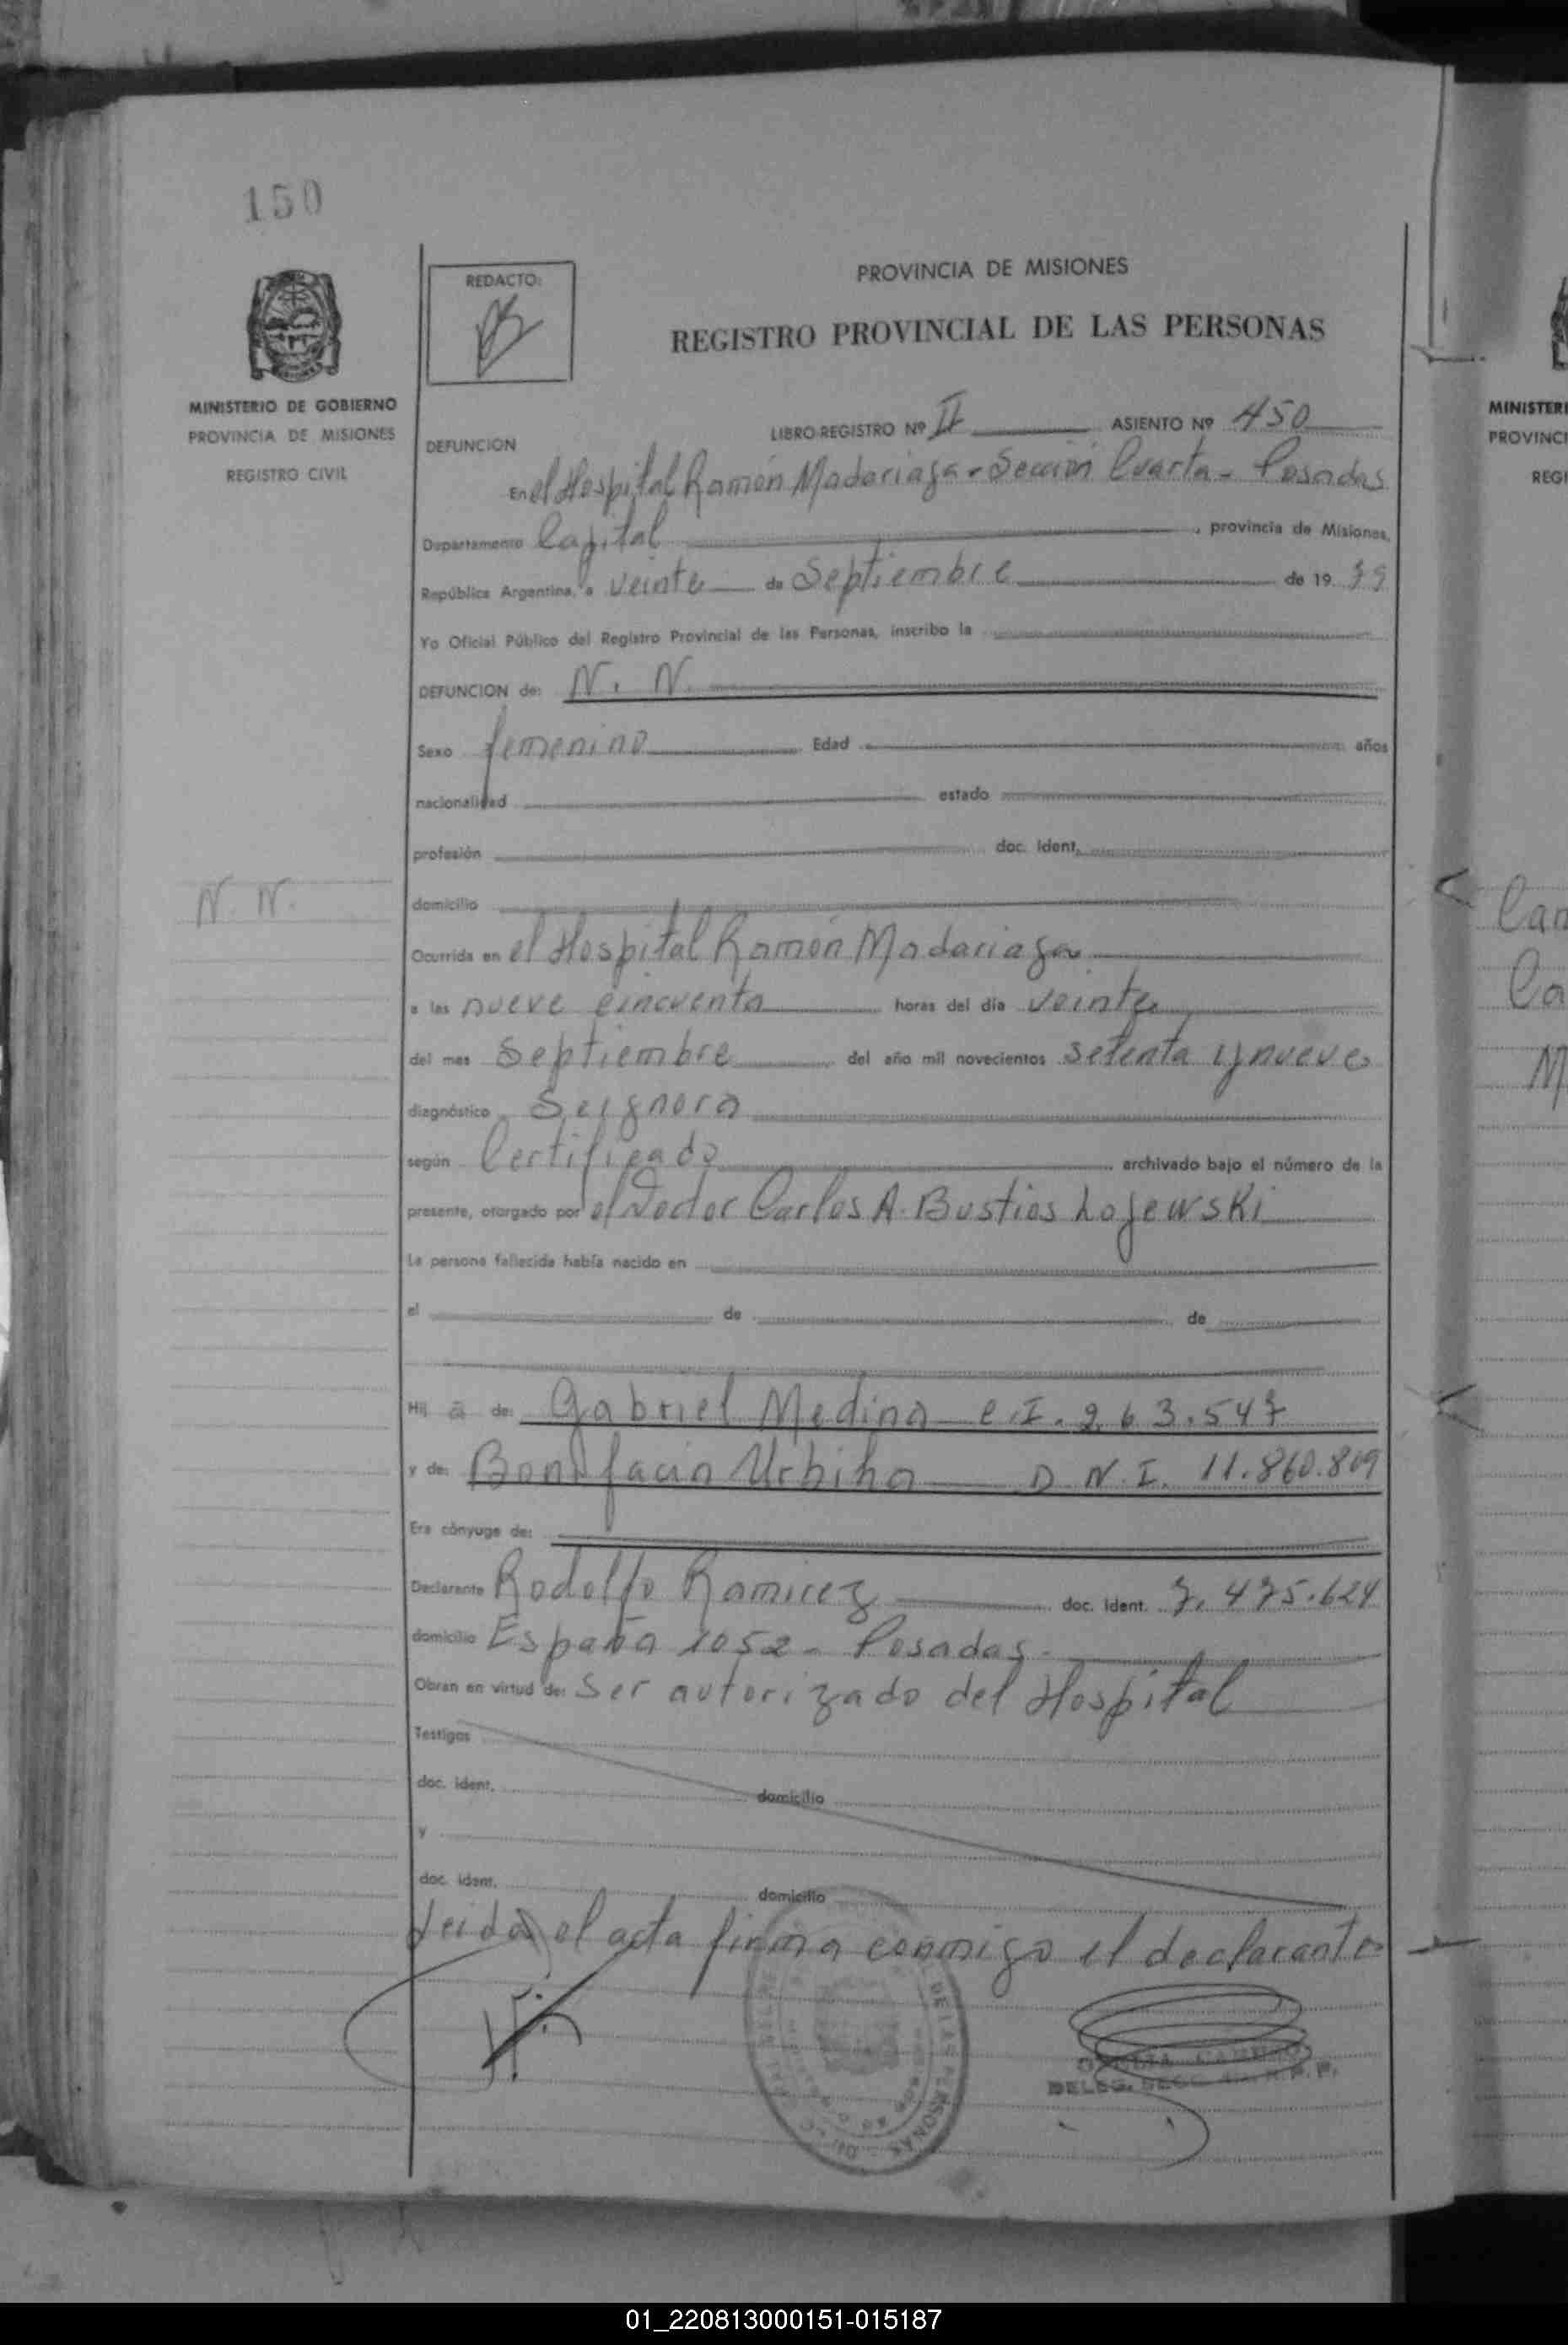 150
REDACTO:
PROVINCIA DE MISIONES
REGISTRO PROVINCIAL DE LAS PERSONAS
MINISTERIO DE GOBIERNO
PROVINCIA DE MISIONES
REGISTRO CIVIL
LIBRO-REGISTRO Nº II ASIENTO Nº 450
DEFUNCION
En el Hospital Ramón Madariaga - Sección Cuarta - Posadas
Departamento Capital, provincia de Misiones,
República Argentina, a veinte de Septiembre de 19 79
Yo Oficial Público del Registro Provincial de las Personas, inscribo la
DEFUNCION de: N. N.
Sexo femenino Edad años
nacionalidad estado
profesión doc. Ident.
N. N.
domicilio
Ocurrida en el Hospital Ramón Madariaga
a las nueve cincuenta horas del día veinte
del mes Septiembre del año mil novecientos setenta y nueve
diagnóstico
según Certificado archivado bajo el número de la
presente, otorgado por el Doctor Carlos A. Bustios Lojewski
La persona fallecida había nacido en
el de de
Hij a de: Gabriel Medina C.I. 263.547
y de: Bonifacia D.N.I. 11.860.809
Era cónyuge de:
Declarante Rodolfo Ramirez doc. ident. 7.475.624
domicilio España 1052 - Posadas -
Obran en virtud de: Ser autorizado del Hospital
Testigos
doc. ident. domicilio
y
doc. ident. domicilio
Leida el acta firma conmigo el declarante
DE LAS PERSONAS
DELEG. SECC. 4a. R.P.P.
MINISTERI
PROVINCI
REGI
01_220813000151-015187